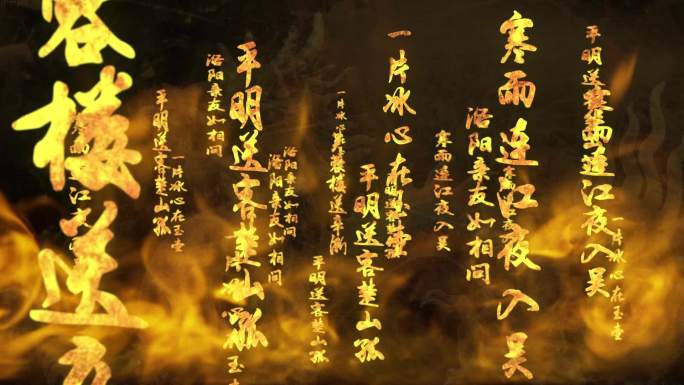 一片冰心在玉壶
平明送
寒雨连江夜入吴
寒雨连江夜入吴
洛阳亲友如相问
寒雨连江夜入吴
一片冰心在玉壶
平明送客楚山孤
一片冰心
芙蓉楼送辛渐
平明送客楚山孤
洛阳亲友如相问
洛阳亲友如相问
平明送客楚山孤
玉壶
洛阳亲友如相问
一片冰心在玉壶
平明送客楚山孤
蓉楼送